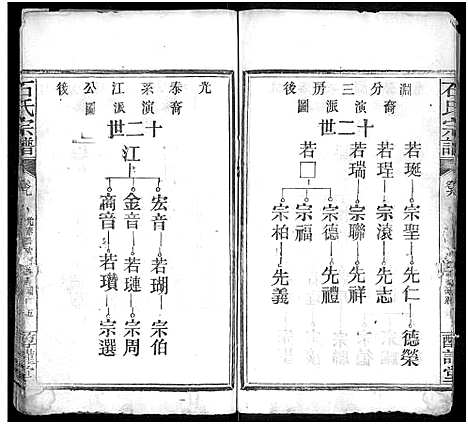 石氏宗譜
淵分三房後
裔演派圖
十二世
若珽 宗聖 先仁 德榮
若珵 宗滾 先志
若瑞 宗聯 先祥
若□ 宗德 先禮
宗福
宗柏 先義
光泰系江公後
裔演派圖
十二世
江
宏音 若瑚 宗伯
金音 若璉 宗周
商音 若瓚 宗選
石氏宗譜